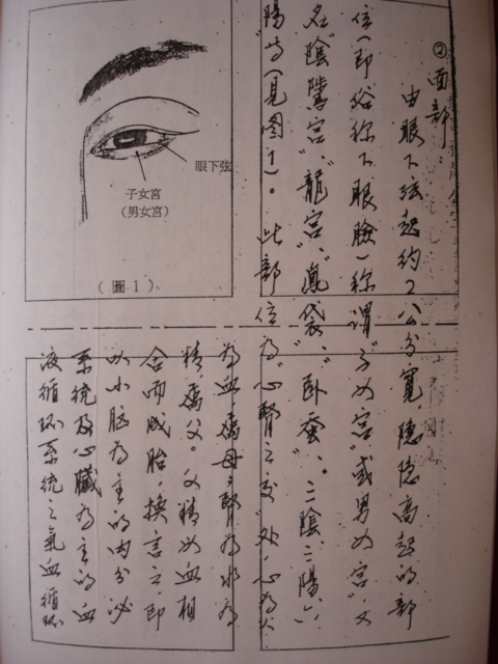 ②面部：
由眼下弦起約2公分寬，隱隱高起的部
位（即俗称下眼瞼）称謂“子女宮”或男女宮”又
名“陰騭宮”、“龍宮”、“鳳袋”、“卧蚕”、“三陰、三陽、六
陽”等（見图1）。此部位為“心腎之交”处，心為火
為血屬母；腎為水為
精，屬父。父精母血相
合而成胎，換言之，即
以小脑為主的内分泌
系統及心臟為主的血
液循环系統之氣血循环
眼下弦
子女宮
（男女宮）
（圖1）